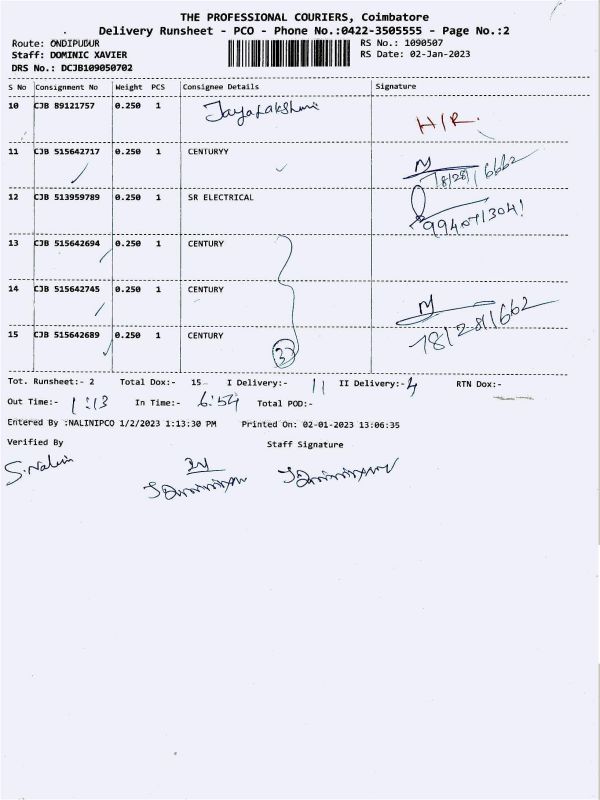 THE PROFESSIONAL COURIERS, Coimbatore
Delivery Runsheet - PCO - Phone No.:0422-3505555 - Page No.:2
Route: ONDIPUDUR RS No.: 1090507
Staff: DOMINIC XAVIER RS Date: 02-Jan-2023
DRS No.: DCJB109050702
S No Consignment No Weight PCS Consignee Details Signature
10 CJB 89121757 0.250 1 Jayalakshmi H/R.
11 CJB 515642717 0.250 1 CENTURYY 7828116662
12 CJB 513959789 0.250 1 SR ELECTRICAL 9940713041
13 CJB 515642694 0.250 1 CENTURY
14 CJB 515642745 0.250 1 CENTURY
15 CJB 515642689 0.250 1 CENTURY 3
Tot. Runsheet:- 2 Total Dox:- 15 I Delivery:- 11 II Delivery:- 4 RTN Dox:-
Out Time:- 1:13 In Time:- 6:54 Total POD:-
Entered By :NALINIPCO 1/2/2023 1:13:30 PM Printed On: 02-01-2023 13:06:35
Verified By Staff Signature
S.Nalini